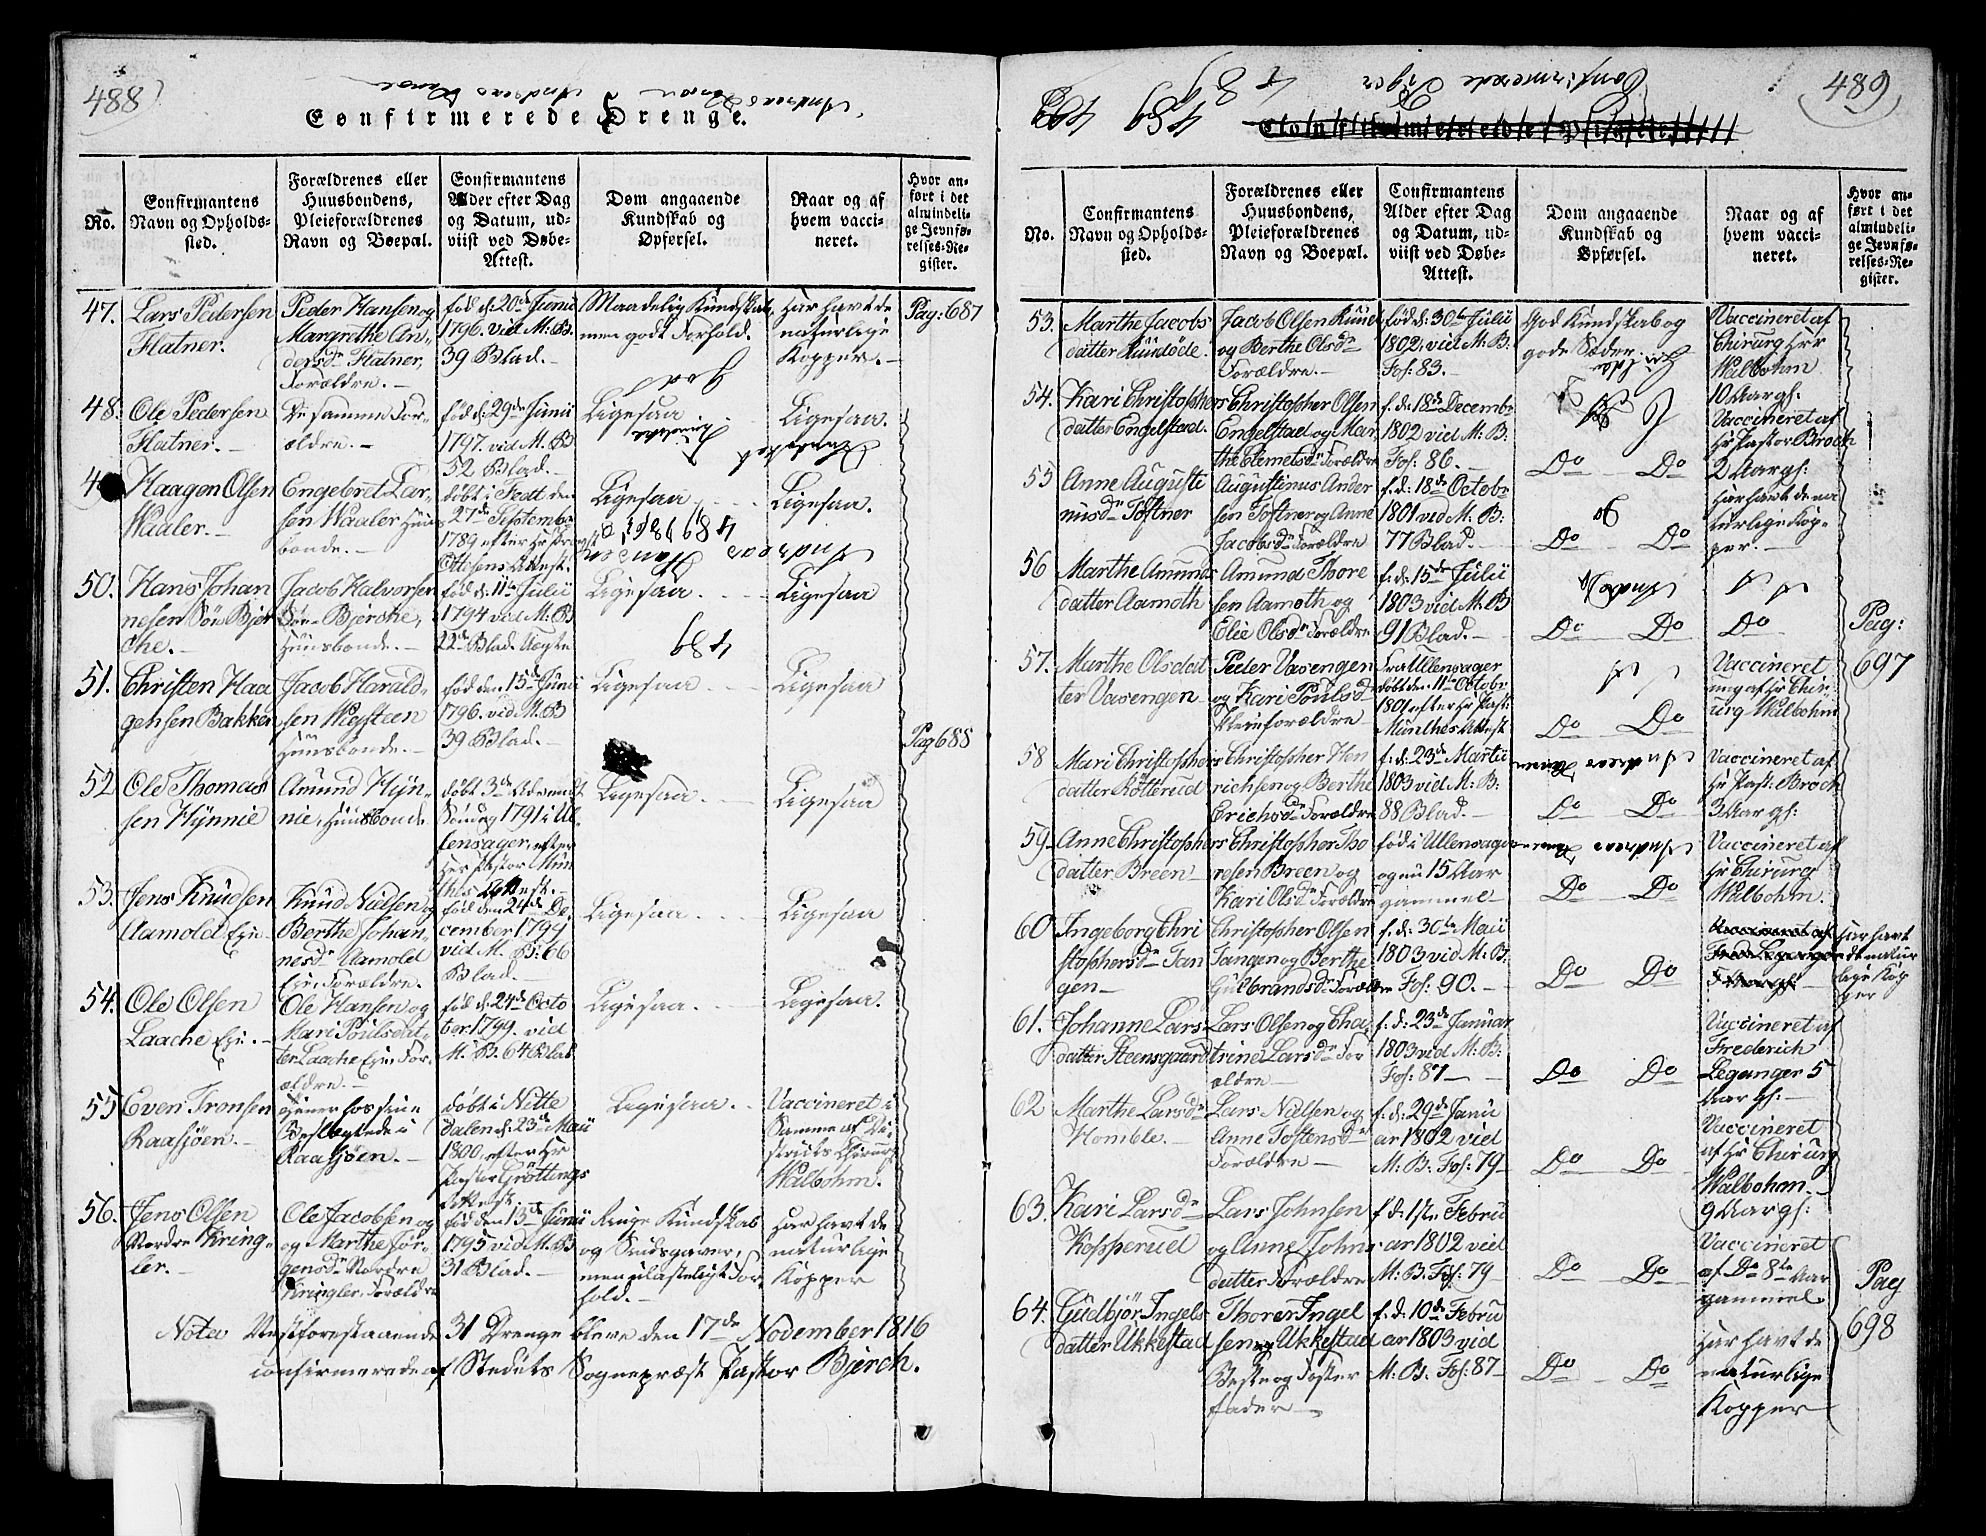 488
Confirmerede Drenge.
No.
Confirmantens
Navn og Opholds-
sted.
Forældrenes eller
Huusbondens,
Pleieforældrenes
Navn og Boepæl.
Confirmantens
Alder efter Dag
og Datum, ud-
viist ved Døbe-
Attest.
Dom angaaende
Kundskab og
Opførsel.
Naar og af
hvem vacci-
neret.
Hvor an-
ført i det
almindeli-
ge Jevnfø-
relses-Re-
gister.
47. Lars Pedersen
Flatner.
Peder Hansen og
Margrethe An-
dersdr Flatner,
Forældre. -
fød d: 20de Junii
1796. vid M: B.
39 Blad. -
Maadelig Kundskab,
men godt Forhold.
Har havt de
naturlige
Kopper. -
Pag: 687
48. Ole Pedersen
Flatner. -
De samme For-
ældre. -
fød d: 29de Junii
1797. vid M: B
52 Blad. -
Ligesaa
Ligesaa.
Haagen Olsen
Waaler. -
Engebret Lar-
sen Waaler Huus
bonde. -
døbt i Fedt den
27de Septembr
1789 efter Hr Provst
Ottesens Attest.
Ligesaa
Ligesaa.
50. Hans Johan
nesen Søn Bjer
che. -
Jacob Halvorsen
Søn-Bjerche,
Huusbonde. -
fød d: 11te Julii
1794 ved M: B
22de Blad. Uægte
Ligesaa. -
Ligesaa
51. Christen Haa
gensen Bakken
Jacob Harald-
sen Wegsteen
Huusbonde. -
fød den 15de Junii
1796. vid M: B
39 Blad. -
Ligesaa. -
Ligesaa
Pag 688
52 Ole Thomas
sen Hynnie
Amund Hyn-
nie, Huusbonde
døbt 3de Advendt
Søndag 1791 i Ul-
lensager, efter
Her Pastor Mun
thes Attest. -
Ligesaa. -
Ligesaa
53. Jens Knudsen
Aamold Eje -
Knud Nielsen og
Berthe Johan-
nesdr Aamold
Eje Forældre. -
fød den 24de De
cember 1799
vid M. B: 66
Blad.
Ligesaa. -
Ligesaa
54. Ole Olsen
Laache Eje. -
Ole Hansen og
Mari Poulsdat-
ter Laache Eje For-
ældre. -
fød d: 24de Octo
ber 1799. vid
M: B. 64 Blad
Ligesaa. -
Ligesaa.
55 Even Tronsen
Raasjøen. -
tjener hos sine
Beslægtede i
Raasjøen. -
døbt i Nitte
dalen d: 23de Maii
1800, efter Hr
Pastor Grøttings
Attest.
Ligesaa. -
Vaccineret i
Samme af Di-
stricts Chirurg
Walbohm.
56. Jens Olsen
Nordre Kring-
ler. -
Ole Jacobsen og
og Marthe Jør-
gensdr Nordre
Kringler, Forældre
fød den 13de Junii
1795 vid M. B
31 Blad. -
Ringe Kundskab
og Sindsgaver,
men ulasteligt For-
hold. -
Har havt de
naturlige
Kopper
Nota Nestforestaaende 31 Drenge bleve den 17de November 1816
confirmerede af Stedets Sognepræst Pastor Bjerch.
489
Confirmerede Piger
No.
Confirmantens
Navn og Opholds-
sted.
Forældrenes eller
Huusbondens,
Pleieforældrenes
Navn og Boepæl.
Confirmantens
Alder efter Dag
og Datum, ud-
viist ved Døbe-
Attest.
Dom angaaende
Kundskab og
Opførsel.
Naar og af
hvem vacci-
neret.
Hvor an-
ført i det
almindeli-
ge Jevnfø-
relses-Re-
gister.
53. Marthe Jacobs
datter Ruudøde.
Jacob Olsen Ruud
og Berthe Olsdr
Forældre. -
fød d: 30te Julii
1802, vid M: B:
Fos: 83. -
God Kundskab og
gode Sæder.
Vaccineret af
Chirurg Hr
Walbohm
10 Aar gs:
54. Kari Christophers
datter Engelstad.
Christopher Olsen
Engelstad og Mar
the Clemetsdr Forældre
f. d: 18de Decembr
1802 vid M: B:
Fos: 86. -
Do - Do
Vaccineret af
Hr Pastor Broch
2 Aar gs:
55 Anne Augusti
nusdr Toftner
Augustinus Ander
sen Toftner og Anne
Jacobsdr Forældre
f. d: 18de Octobr
1801 vid M: B:
77 Blad. -
Do - Do
Har havt de na
turlige Kop-
per. -
56 Marthe Amunds
datter Aamoth
Amund Thore
sen Aamoth og
Elie Olsdr Forældre
f. d: 15de Julii
1803 vid M: B
91 Blad. -
Do - Do
Do
Pag:
697
57. Marthe Olsdat
ter Vasengen
Peder Vasengen
og Kari Poulsdr
Pleieforældre
Fra Ullensager
døbt den 11te Octobr
1801 efter Hr Past:
Munthes Attest
Do - Do
Vaccineret
ung af Hr Chir-
urg Walbohm
58 Mari Christophers
datter Rotterud
Christopher Hen
richsen og Berthe
Erichsdr Forældre
f. d: 23de Martii
1803 vid M: B:
88 Blad. -
Do - Do
Vaccineret af
Hr Past: Broch
3 Aar gs:
59 Anne Christophers
datter Breen
Christopher Tho
resen Breen og
Kari Olsdr Forældre
fød i Ullensager
og nu 15 Aar
gammel -
Do - Do
Vaccineret af
Hr Chirurg
Walbohm.
60. Ingeborg Chri
stophersdr Tan
gen -
Christopher Olsen
Tangen og Berthe
Gulbrandsdr Forældre
f. d: 30te Maii
1803 vid M. B.
Fos: 90. -
Do - Do
Har havt
de natur
lige Kop
per
61. Johanne Lars
datter Steensgaard
Lars Olsen og Cha
trine Larsdr For
ældre -
f. d: 23de Januar
1803 vid M: B:
Fos: 87 -
Do Do
Vaccineret af
Frederich
Leganger 5
Aar gs: -
62 Marthe Larsdr
Homble. -
Lars Nielsen og
Anne Tostensdr
Forældre -
f: d: 29de Janu
ar 1802 vid
M: B: Fos: 79 -
Do - Do
Vaccineret
af Hr Chirurg
Walbohm -
9 Aar gs:
63. Kari Larsdr
Kopperud
Lars Johnsen
og Anne Johns
datter Forældre
f d. 1ste Febru
ar 1802 vid
M: B. Fos: 79 -
Do - Do
Vaccineret
af Do 8te Aar
gammel.
Pag
698
64. Gudbjør Ingels
datter Ukkestad
Thorer Ingel
sen Ukkestad
Beste og Foster
fader -
f. d. 10de Febru
ar 1803 vid
M: B: Fos: 87 -
Do - Do
Har havt de
naturlige
Kopper